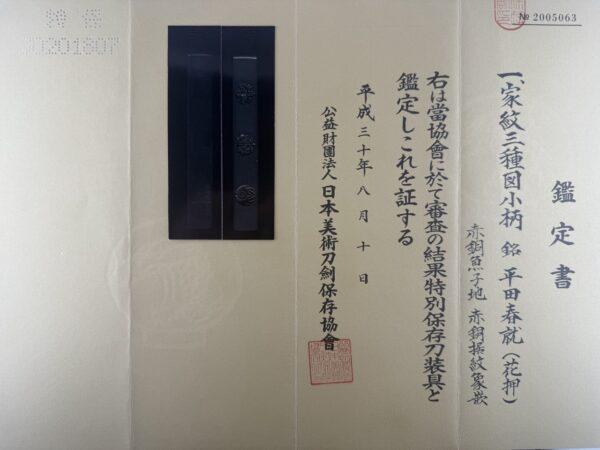 № 2005063
鑑定書
一、家紋三種図小柄 銘 平田春就(花押)
赤銅魚子地 赤銅据紋象嵌
右は當協會に於て審査の結果特別保存刀装具と
鑑定しこれを証する
平成三十年八月十日
公益財團法人 日本美術刀劍保存協會
特保
20201807